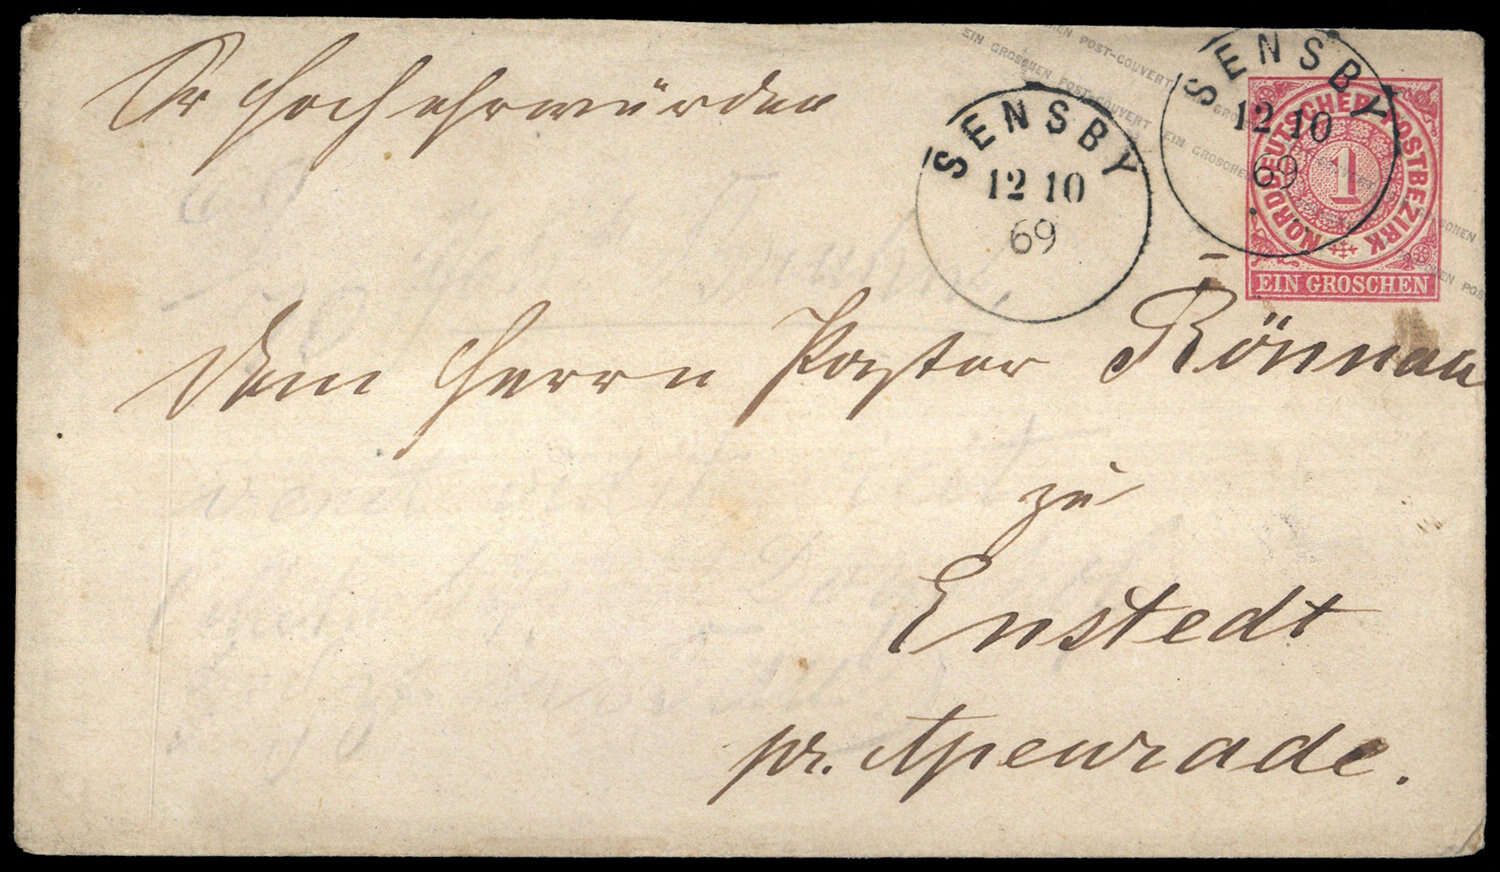 Sr Hochehrwürden
EIN GROSCHEN POST-COUVERT EIN GROSCHEN
POST-COUVERT
SENSBY
12 10
69
SENSBY
12 10
69
NORDDEUTSCHER POSTBEZIRK
1
EIN GROSCHEN
Dem Herrn Pastor Rönnau
zu
Enstedt
pr. Apenrade.